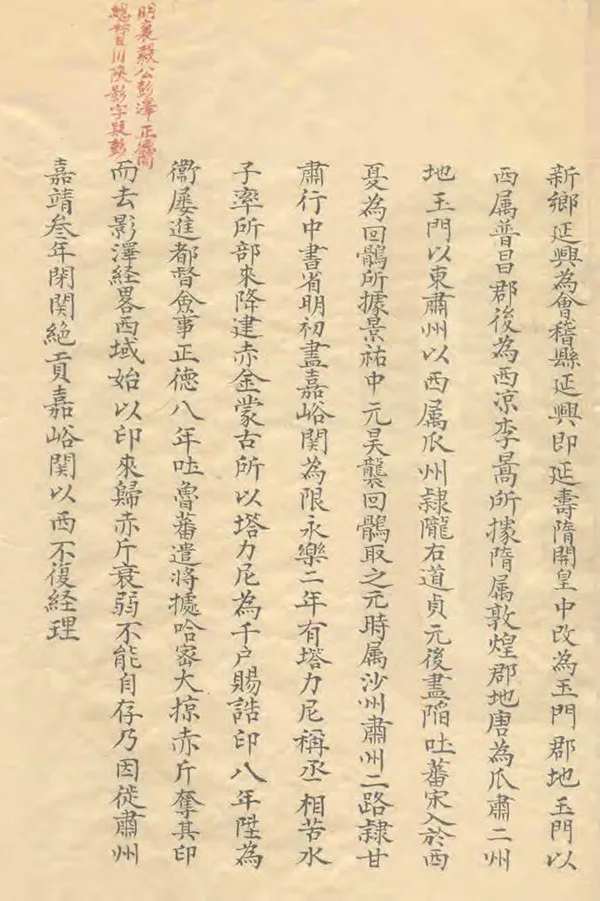 新鄉延興為會稽縣延興即延壽隋開皇中改為玉門郡地玉門以
西属普昌郡後為西凉李暠所據隋属敦煌郡地唐為瓜肅二州
地玉門以東肅州以西属瓜州隸隴右道貞元後盡陷吐蕃宋入於西
憂為回鶻所據景祐中元昊襲回鶻取之元時属沙州肅州二路隸甘
肅行中書省明初盡嘉峪関為限永樂二年有塔力尼稱丞相苦水
子率所部來降建赤金蒙古所以塔力尼為千户賜誥印八年陞為
衞屢進都督僉事正德八年吐魯蕃遣將據哈密大掠赤斤奪其印
而去影澤経畧西域始以印來歸赤斤衰弱不能自存乃因徙肅州
嘉靖叁年閉関絶貢嘉峪関以西不復経理
明襄毅公彭澤正德間
總督川陝影字疑彭